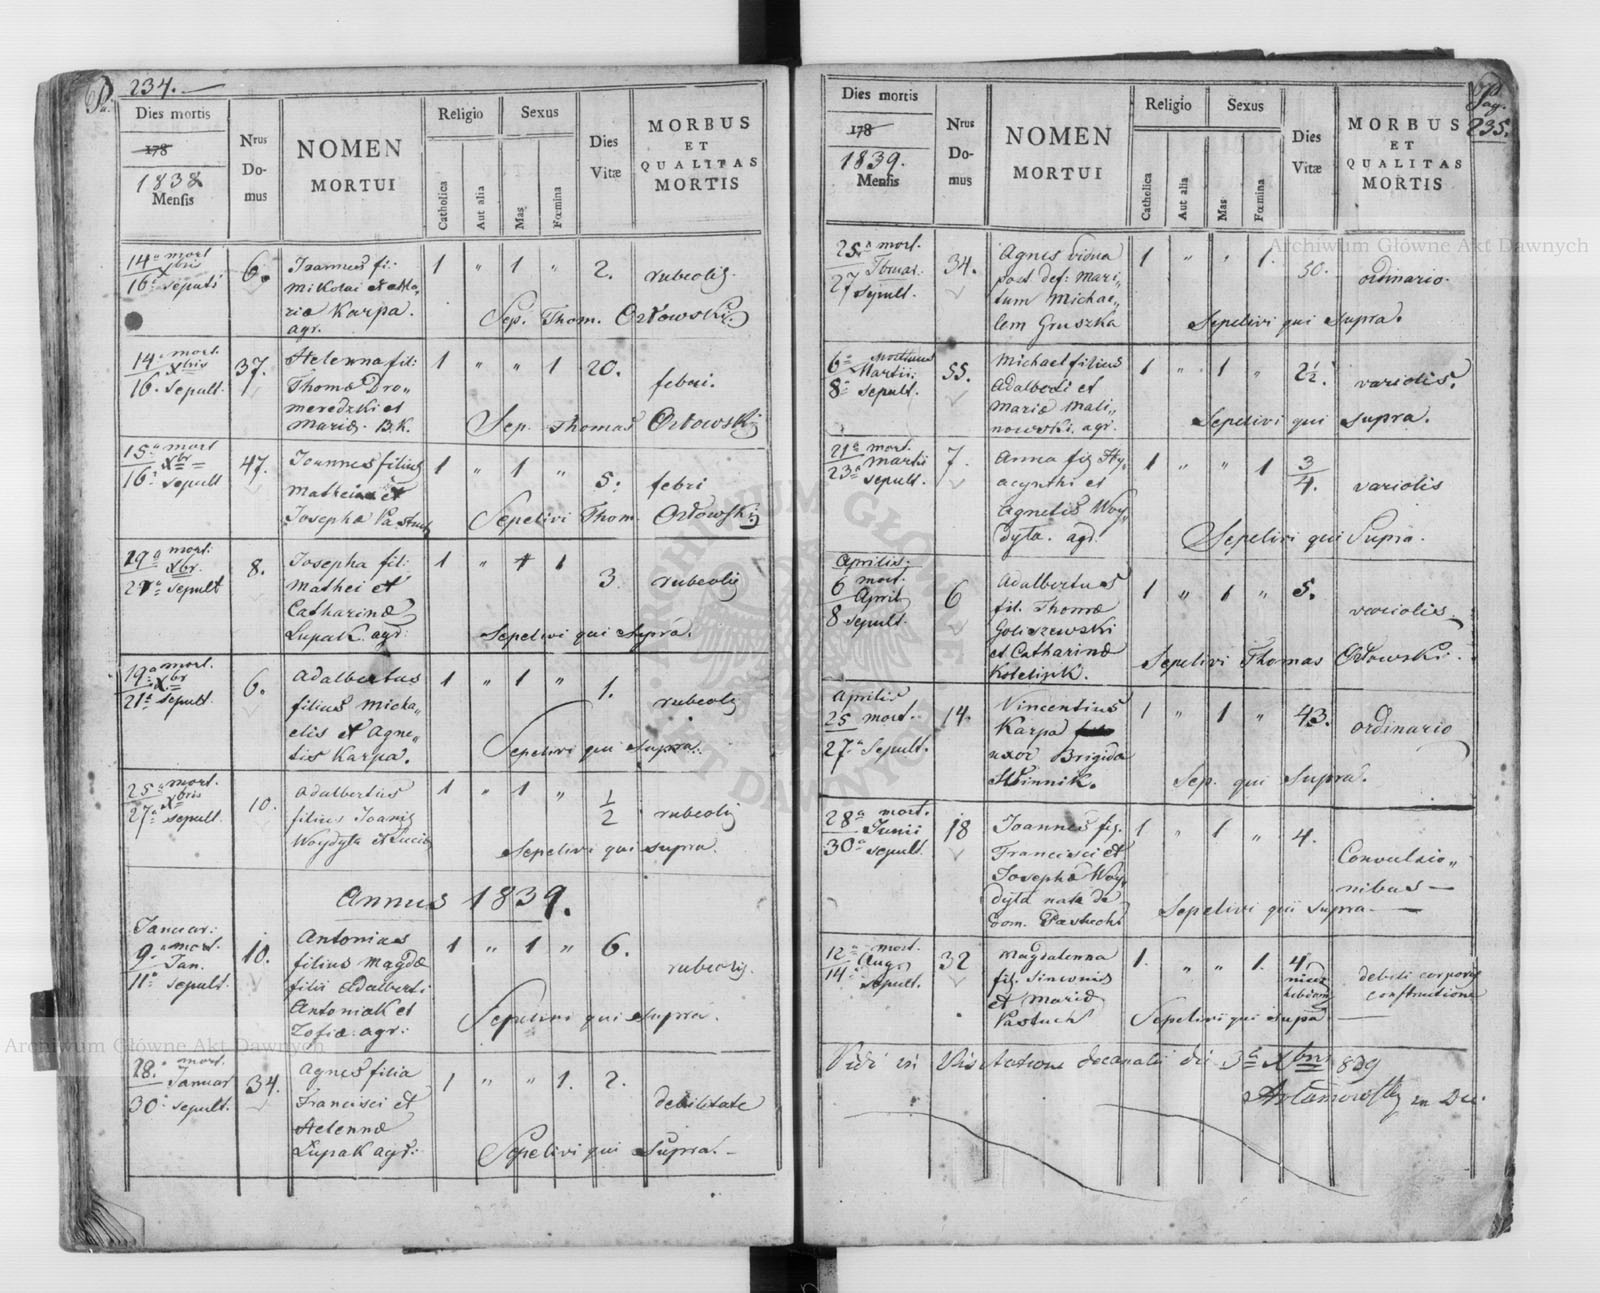 234.
Dies mortis
178
1838
Mensis
Nrus
Do-
mus
NOMEN
MORTUI
Religio
Catholica
Aut alia
Sexus
Mas
Fœmina
Dies
Vitæ
MORBUS
ET
QUALITAS
MORTIS
14a mort
Xbris
16 sepult
6.
Joannes fi:
Mikolai et Ma,,
riæ Karpa.
agr.
1 " 1 " 2. rubeolis
Sep. Thom. Orłowski
14. mort.
Xbris
16. sepult.
37.
Helenna fil:
Thomæ Dro,,
meredzki et
Mariæ. B.K.
1 " " 1 20. febri.
Sep. Thomas Orłowski
15a mort
Xbr
16. sepult
47.
Joannes filius
Mathei et
Josephæ Pastuch
1 " 1 " 5. febri
Sepelivi Thom. Orłowski
19a mort.
Xbr.
21a sepult
8.
Josepha fil:
Mathei et
Catharinæ
Łupak. agr:
1 " 1 1 3. rubeolis
Sepelivi qui supra.
19a mort.
Xbr
21a sepult.
6.
Adalbertus
filius Micha,,
elis et Agne,,
tis Karpa.
1 " 1 " 1. rubeolis
Sepelivi qui supra.
25a mort.
Xbris
27a sepult.
10.
Adalbertus
filius Joanis
Woydyła et Lucia
1 " 1 " 1/2 rubeolis
Sepelivi qui supra.
Annus 1839.
Januar:
9. mort.
Jan.
11a sepult.
10.
Antonius
filius Magdæ
filii Adalberti
Antoniak et
Zofiæ. agr:
1 " 1 " 6. rubeolis.
Sepelivi qui supra.
28. mort.
Januar
30. sepult.
34.
Agnes filia
Francisci et
Helennæ
Łupak agr:
1 " " 1. 2. debilitate
Sepelivi qui supra.
Pag.
235.
Dies mortis
178
1839.
Mensis
Nrus
Do-
mus
NOMEN
MORTUI
Religio
Catholica
Aut alia
Sexus
Mas
Fœmina
Dies
Vitæ
MORBUS
ET
QUALITAS
MORTIS
25a mort.
Fbruar.
27 sepult.
34.
Agnes vidua
post def: mari,,
tum Micha,,
lem Gruszka
1 " " 1. 50. ordinario.
Sepelivi qui supra.
6a mortuus
Martii:
8a sepult.
55.
Michael filius
Adalberti et
Mariæ Mali,,
nowski. agr.
1 " 1 " 2 1/2. variolis.
Sepelivi qui supra.
21a mort.
Martii
23a sepult.
7.
Anna fil Hy,,
acynthi et
Agnetis Woy,,
dyła. agr.
1 " " 1 3/4. variolis
Sepelivi qui Supra.
Aprilis.
6 mort.
April
8 sepult.
6
Adalbertus
fil. Thomæ
Goliszewski
et Catharinæ
1 " 1 " 5. variolis
Sepelivi Thomas Orłowski.
Aprilis
25 mort.
27a Sepult.
14.
Vincentius
Karpa
uxor Brigida
1 " 1 " 43. ordinario
Sep. qui supra.
28a mort.
Junii
30a sepult.
18
Joannes fil.
Francisci et
Josepha Woy,,
dyła nata de
dom. Pastuch
1 " 1 " 4. Convulsio,,
nibus
Sepelivi qui supra.
12a mort.
Aug.
14a sepult.
32
Magdalenna
fil. Simeonis
et Mariæ
Pastuch
1. " " 1. 4. debili corporis
constructione
Sepelivi qui supa
Vidi in Visitatione decanali die 3a Xbris 839
Archiwum Główne Akt Dawnych
Archiwum Główne Akt Dawnych
ARCHIWUM GŁÓWNE AKT DAWNYCH